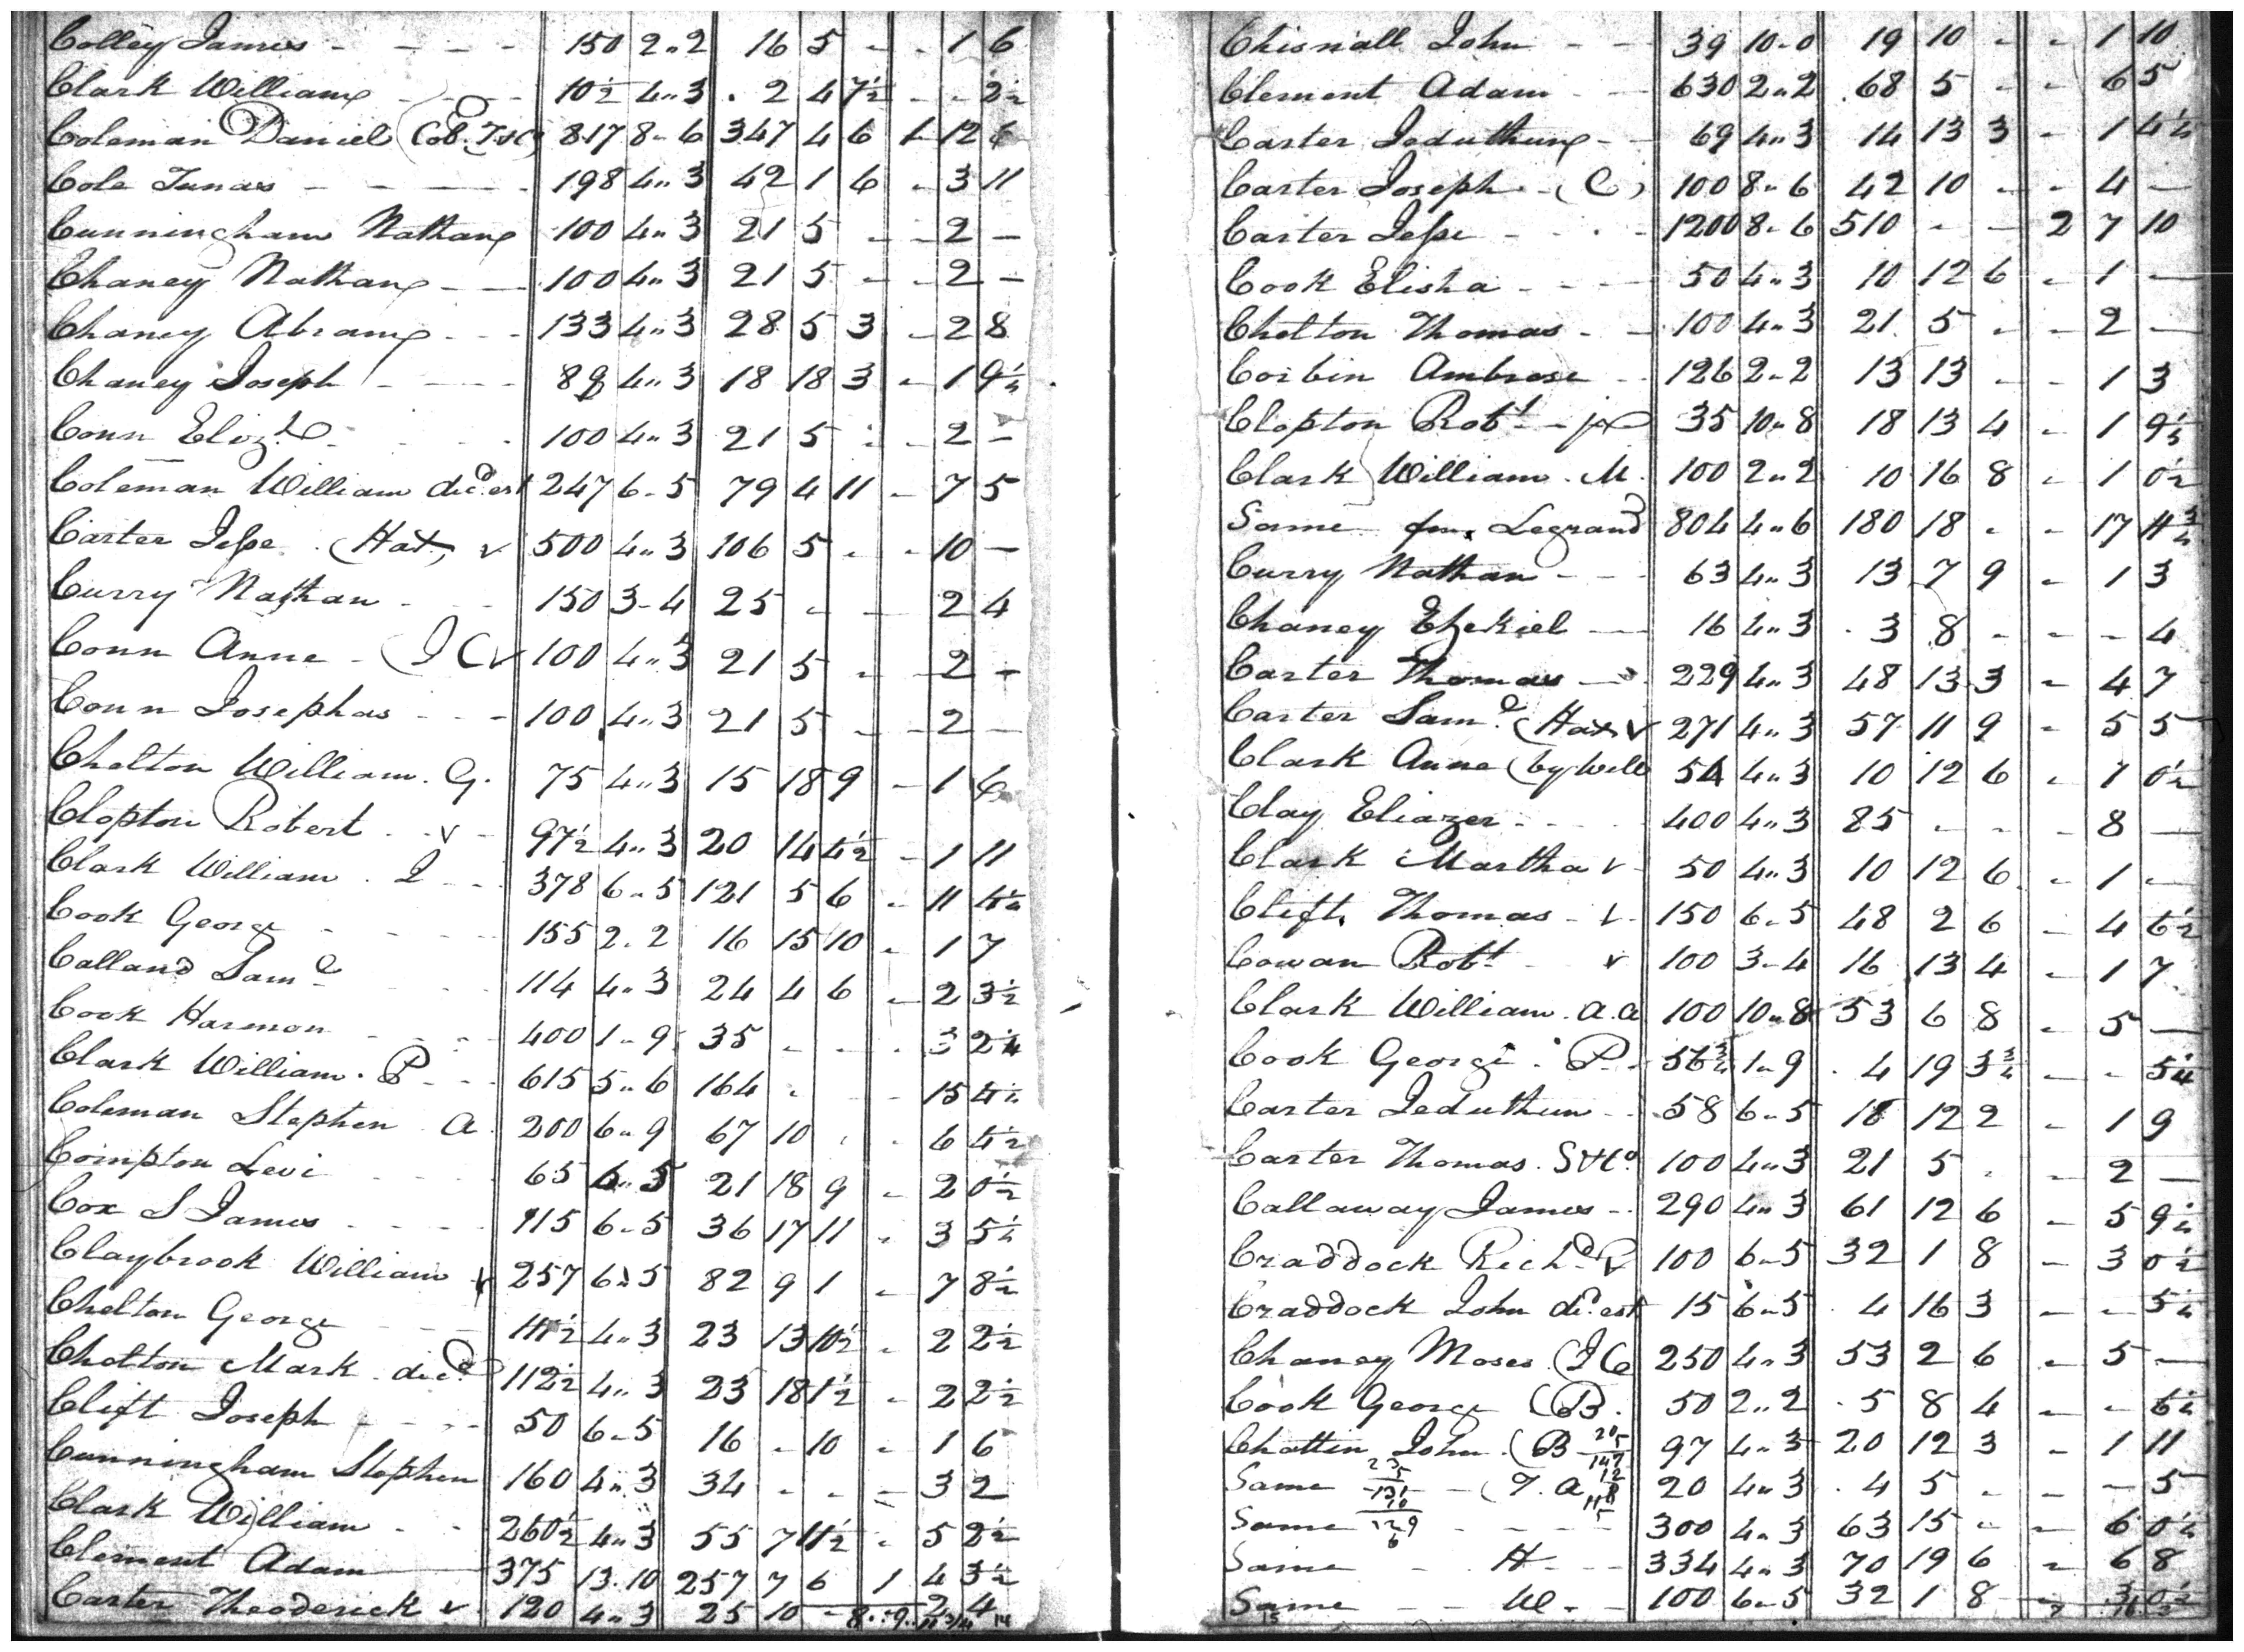 Colley James - - - - 150 2"2 16 5 - - 1 6
Clark William - - - 10½ 4"3 . 2 4 7½ - - 2½
Coleman Daniel (Cob. T&C) 817 8"6 347 4 6 1 12 6
Cole Tunas - - - - 198 4"3 42 1 6 - 3 11
Cunningham Nathan 100 4"3 21 5 - - 2 -
Chaney Nathan - - 100 4"3 21 5 - - 2 -
Chaney Abram - - - 133 4"3 28 5 3 - 2 8
Chaney Joseph - - - 89 4"3 18 18 3 - 1 9¼
Conn Eliz.h - - - 100 4"3 21 5 - - 2 -
Coleman William decd est 247 6"5 79 4 11 - 7 5
Carter Jesse . (Hat) v 500 4"3 106 5 - - 10 -
Curry Nathan - - 150 3"4 25 - - - 2 4
Conn Anne - (J C v 100 4"3 21 5 - - 2 -
Conn Josephas - - - 100 4"3 21 5 - - 2 -
Chelton William . G. 75 4"3 15 18 9 - 1 6
Clopton Robert . . v - 97½ 4"3 20 14 4½ - 1 11
Clark William . I - - 378 6"5 121 5 6 - 11 4¼
Cook George - - - 155 2"2 16 15 10 - 1 7
Calland Saml - - - 114 4"3 24 4 6 - 2 3½
Cook Harmon - - - 400 1"9 35 - - - 3 2¼
Clark William . P - - - 615 5"6 164 - - - 15 4½
Coleman Stephen A. 200 6"9 67 10 - - 6 4½
Compton Levi - - - 65 6"5 21 18 9 - 2 0½
Cox S James - - - - 115 6"5 36 17 11 - 3 5½
Claybrook William v 257 6"5 82 9 1 - 7 8½
Chelton George - - - 111½ 4"3 23 13 10½ - 2 2½
Chelton Mark . decd 112½ 4"3 23 18 1½ - 2 2½
Clift Joseph - - - - 50 6"5 16 - 10 - 1 6
Cunningham Stephen 160 4"3 34 - - - 3 2
Clark William - - 260½ 4"3 55 7 11½ - 5 2½
Clement Adam 375 13.10 257 7 6 1 4 3½
Carter Theoderick v 120 4"3 25 10 - 2 4
Chisnall John - - 39 10"0 19 10 - - 1 10
Clement Adam - - 630 2"2 68 5 - - 6 5
Carter Jeduthun - - 69 4"3 14 13 3 - 1 4¼
Carter Joseph - (C) 100 8"6 42 10 - - 4 -
Carter Jesse - - - - 1200 8"6 510 - - 2 7 10
Cook Elisha - - - 50 4"3 10 12 6 - 1 -
Chelton Thomas - - 100 4"3 21 5 - - 2 -
Corbin Ambrose - - 126 2"2 13 13 - - 1 3
Clopton Robt - jr 35 10"8 18 13 4 - 1 9½
Clark William . M. 100 2"2 10 16 8 - 1 0½
Same fm. Legrand 804 4"6 180 18 - - 17 11¾
Curry Nathan - - - 63 4"3 13 7 9 - 1 3
Chaney Ezekiel - 16 4"3 . 3 8 - - - 4
Carter Thomas - 229 4"3 48 13 3 - 4 7
Carter Saml (Hat) v 271 4"3 57 11 9 - 5 5
Clark Anne (by Will 54 4"3 10 12 6 - 1 0½
Clay Eliazer - - - 400 4"3 85 - - - 8 -
Clark Martha v - 50 4"3 10 12 6 - 1 -
Clift Thomas - v - 150 6"5 48 2 6 - 4 6½
Cowan Robt - v 100 3"4 16 13 4 - 1 7
Clark William . a.a 100 10"8 53 6 8 - 5 -
Cook George . P - 56¾ 1"9 . 4 19 3¾ - - 5¼
Carter Jeduthun - - 58 6"5 18 12 2 - 1 9
Carter Thomas . S&Co. 100 4"3 21 5 - - 2 -
Callaway James - - 290 4"3 61 12 6 - 5 9¼
Craddock Richd v 100 6"5 32 1 8 - 3 0½
Craddock John decd est 15 6"5 . 4 16 3 - - 5¼
Chaney Moses (J C 250 4"3 53 2 6 - 5 -
Cook George (B . 50 2"2 . 5 8 4 - - 6¼
Chattin John . (B 97 4"3 20 12 3 - 1 11
Same - (T. a 20 4"3 . 4 5 - - - 5
Same - - - - 300 4"3 63 15 - - 6 0¼
Same - H - - - 334 4"3 70 19 6 - 6 8
Same - - W - 100 6"5 32 1 8 - 3 0½